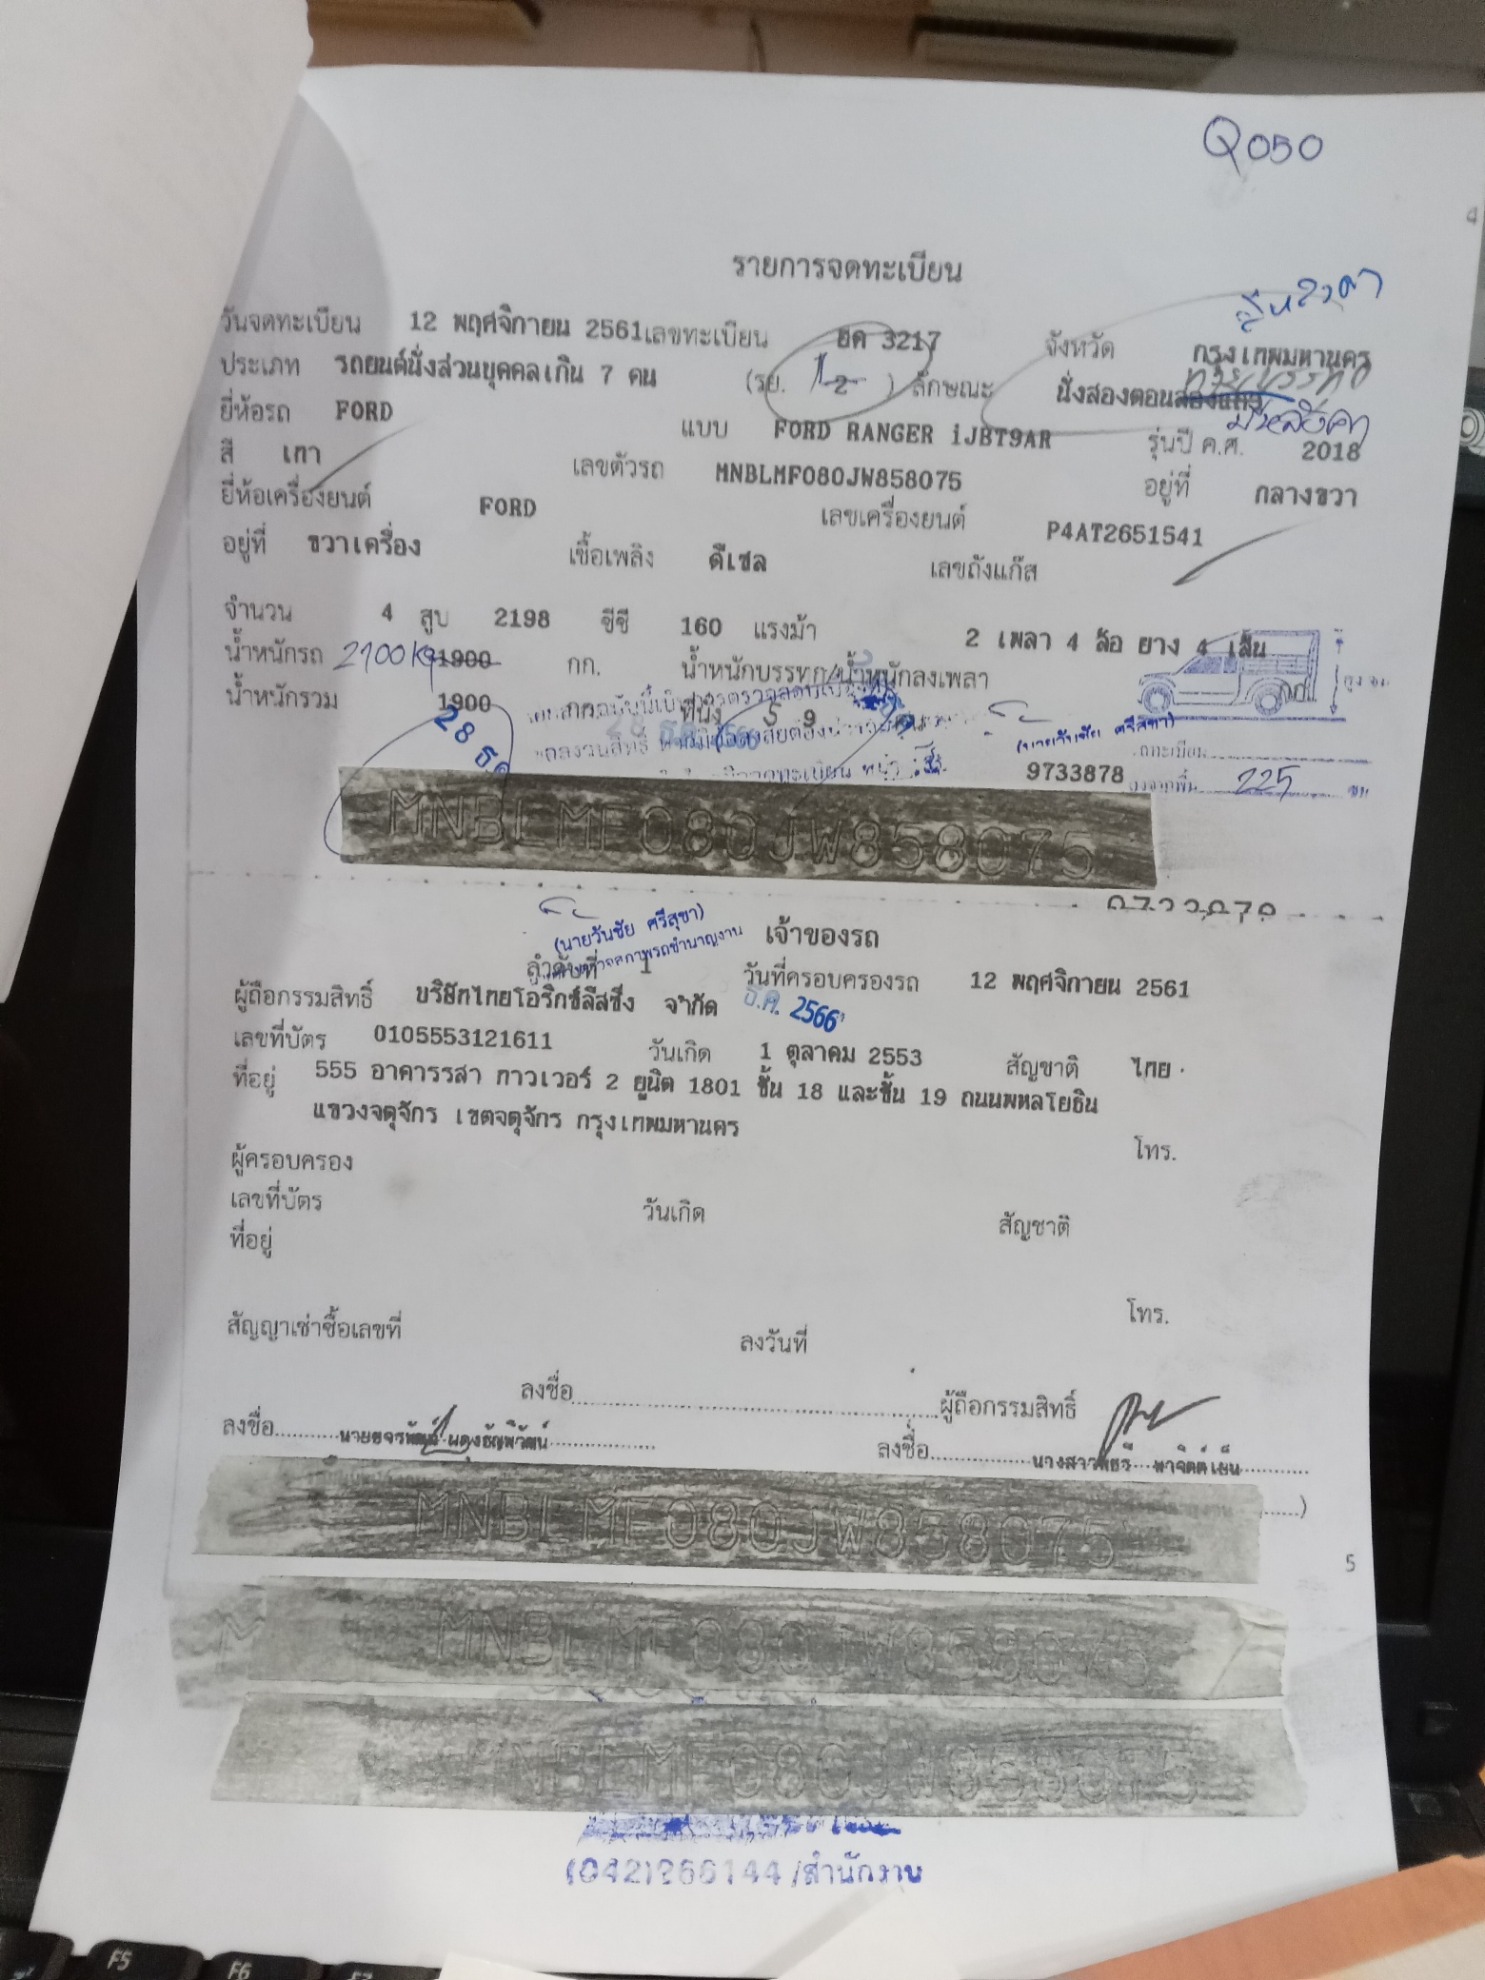 Q050
4
รายการจดทะเบียน
มีหลังคา
วันจดทะเบียน 12 พฤศจิกายน 2561 เลขทะเบียน ฮค 3217 จังหวัด กรุงเทพมหานคร
ประเภท รถยนต์นั่งส่วนบุคคลเกิน 7 คน (รย. 2 ) ลักษณะ นั่งสองตอนสองแถว
มีหลังคา
ยี่ห้อรถ FORD แบบ FORD RANGER 1JBT9AR รุ่นปี ค.ศ. 2018
สี เทา เลขตัวรถ MNBLMF080JW858075 อยู่ที่ กลางขวา
ยี่ห้อเครื่องยนต์ FORD เลขเครื่องยนต์ P4AT2651541
อยู่ที่ ขวาเครื่อง เชื้อเพลิง ดีเซล เลขถังแก๊ส
จำนวน 4 สูบ 2198 ซีซี 160 แรงม้า 2 เพลา 4 ล้อ ยาง 4 เส้น
น้ำหนักรถ 2100 kg 1900 กก. น้ำหนักบรรทุก/น้ำหนักลงเพลา
น้ำหนักรวม 1900 กก. ที่นั่ง 5 9
28 ธ.ค.
(นายวันชัย ศรีสุขา)
9733878
225 ซม
MNBLMF080JW858075
(นายวันชัย ศรีสุขา)
เจ้าของรถ
ลำดับที่ 1 วันที่ครอบครองรถ 12 พฤศจิกายน 2561
ผู้ถือกรรมสิทธิ์ บริษัทไทยโอริกซ์ลีสซิ่ง จำกัด ธ.ค. 2566
เลขที่บัตร 0105553121611 วันเกิด 1 ตุลาคม 2553 สัญชาติ ไทย
ที่อยู่ 555 อาคารรสา ทาวเวอร์ 2 ยูนิต 1801 ชั้น 18 และชั้น 19 ถนนพหลโยธิน
แขวงจตุจักร เขตจตุจักร กรุงเทพมหานคร
ผู้ครอบครอง โทร.
เลขที่บัตร วันเกิด สัญชาติ
ที่อยู่
โทร.
สัญญาเช่าซื้อเลขที่ ลงวันที่
ลงชื่อ ผู้ถือกรรมสิทธิ์
ลงชื่อ ลงชื่อ
MNBLMF080JW858075
5
MNBLMF080JW858075
MNBLMF080JW858075
(042)266144/สำนักงาน
F5
F6